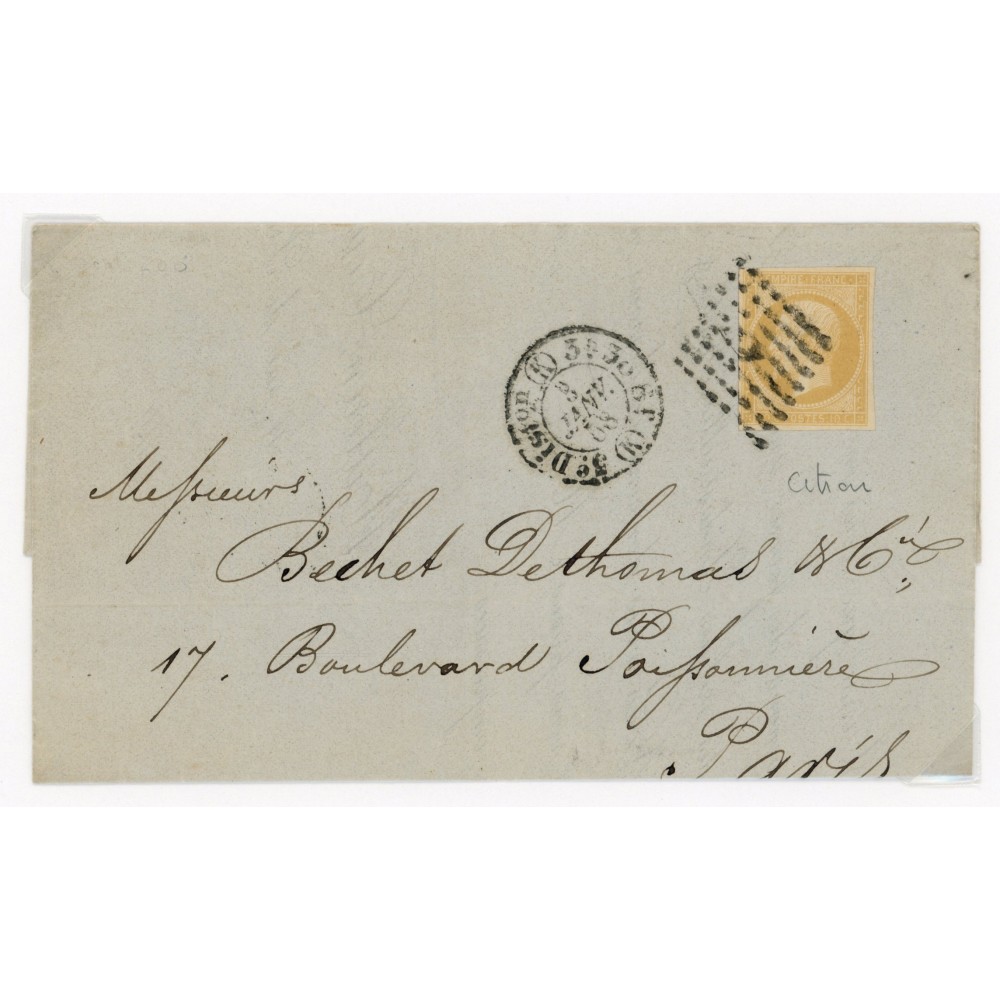 EMPIRE · FRANC
POSTES · 10 · C
3e Distion (K) 3e 30 (N)
8
JANV.
58
citron
Messieurs
Bechet Dethomas & Cie
17. Boulevard Poissonnière
Paris